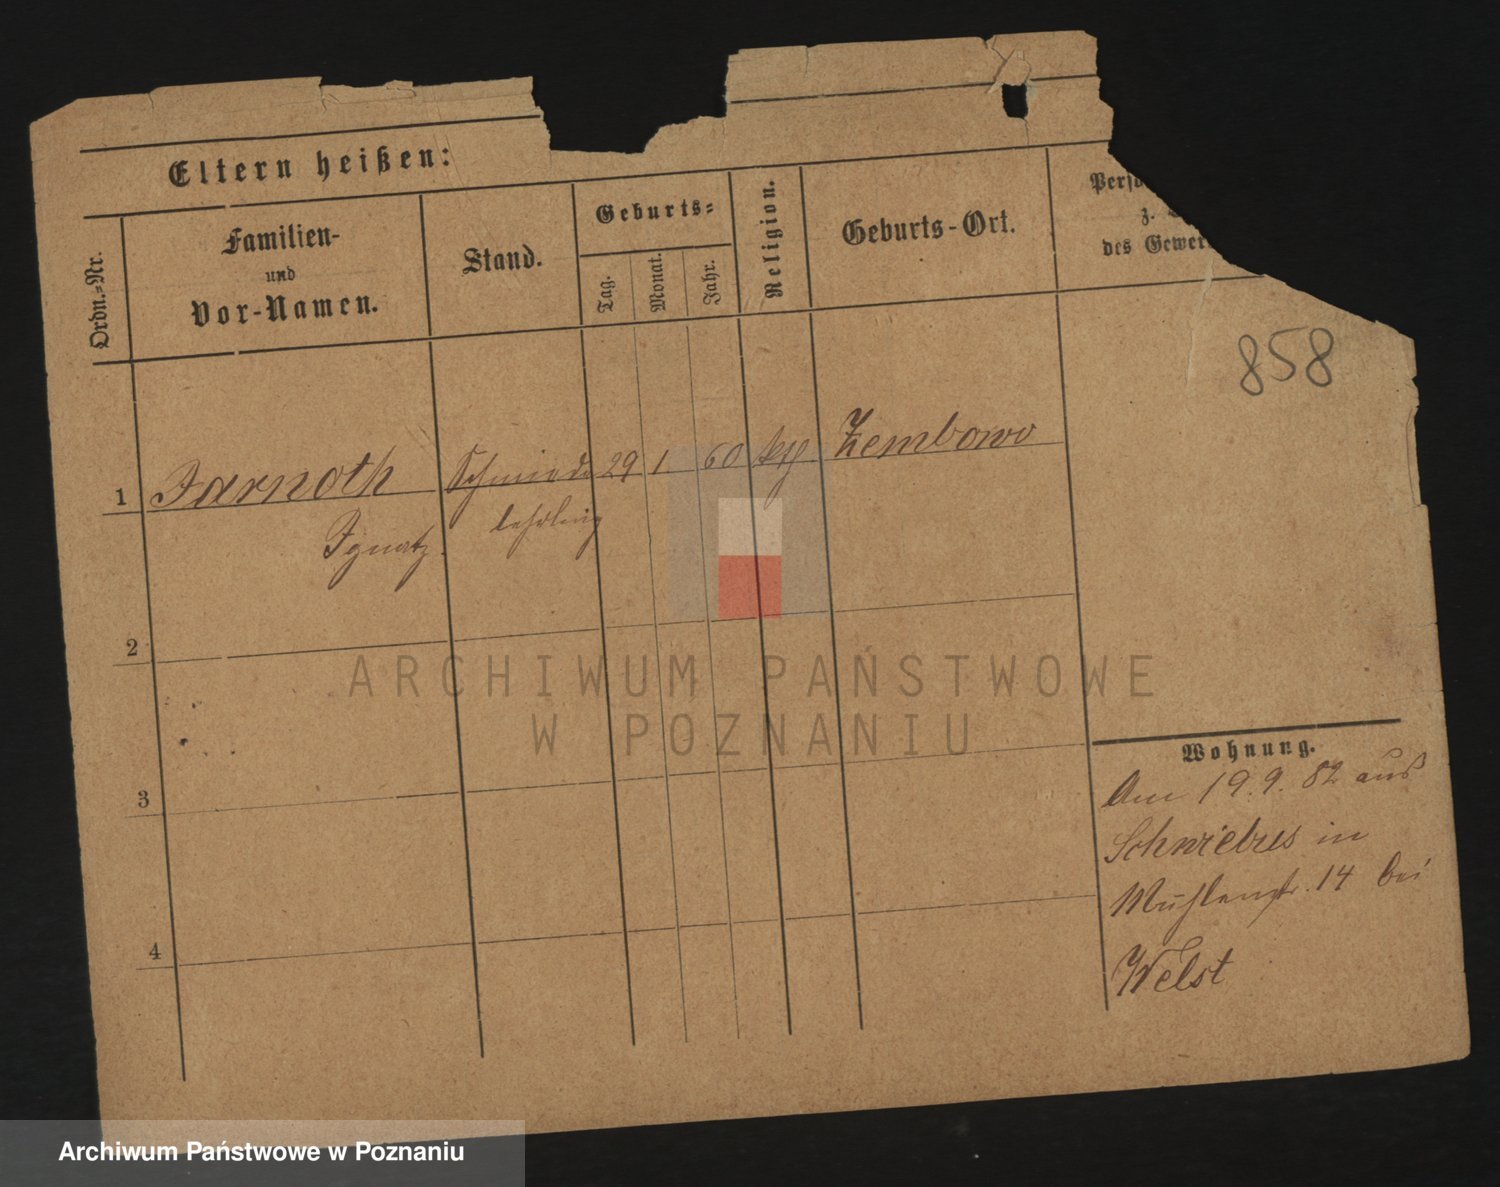 Eltern heißen:
Ordn.-Nr.
Familien-
und
Vor-Namen.
Stand.
Geburts-
Tag.
Monat.
Jahr.
Religion.
Geburts-Ort.
z.
des Gewer
858
1 Jarnoth Schmiede 29 1 60 kth. Zembowo
Ignatz. lehrling
2
3
4
Wohnung.
Am 19.9.82 aus
Schwiebus in
Mühlenstr. 14 bei
Welst
ARCHIWUM PAŃSTWOWE
W POZNANIU
Archiwum Państwowe w Poznaniu